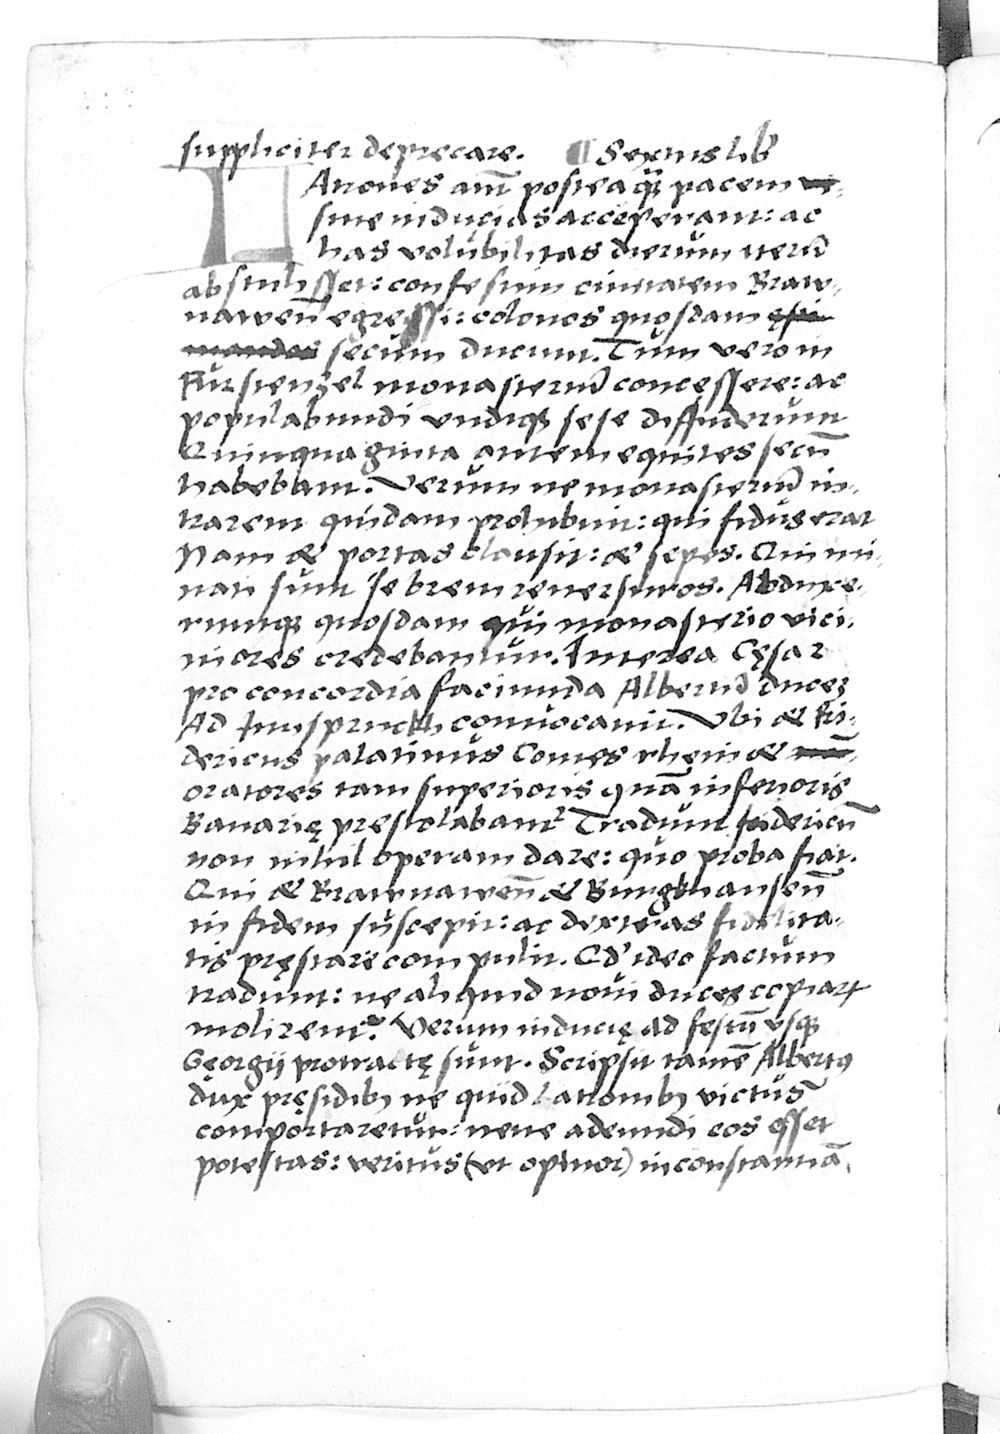 suppliciter deprecare. ¶ Sextus lib̃
LAtrones aut̃ posteaq̃ȝ pacem
siue inducias acceperant: ac
has volubilitas dierum iterũ
abstulisset: confestim ciuitatem Braw-
nawen̄ egressi: colonos quosdam
secum ducunt. Tum vero in
Fürstenzel monasteriũ concessere: ac
populabundi vndiqȝ sese diffuderunt
Quinquaginta autem equites secũ
habebant. Verum ne monasteriũ in-
trarent quidam prohibuit: qui fidus erat
Nam & portas clausit: & sepes. Qui mi-
nati sunt se brem reuersuros. Abduxe-
runtqȝ quosdam qui monasterio vici-
niores credebantur. Interea Cęsar
pro concordia faciunda Albertũ duceȝ
Ad Innspruckh conuocauit. Vbi & Fri-
dericus palatinus Comes rheni &
oratores tam superioris quã inferioris
Bauarię prestolabant᷑ Tradunt fridericũ
non nihil operam dare: quo proba fiat.
Qui & Brawnawen̄ & Burgkhausen̄
in fidem suscepit: ac dexteras fidelita-
tis pręstare compulit. Qd' ideo factum
tradunt: ne aliquid noui duces copiaꝝ
molirent᷑. Verum inducię ad festũ vsqȝ
Gęorgij protractę sunt. Scripsit tamẽ Albertꝰ
dux pręsidibȝ ne quid latronibȝ victus
comportaretur: neue adeundi eos esset
potestas: veritus (vt opinor) inconstantiã.